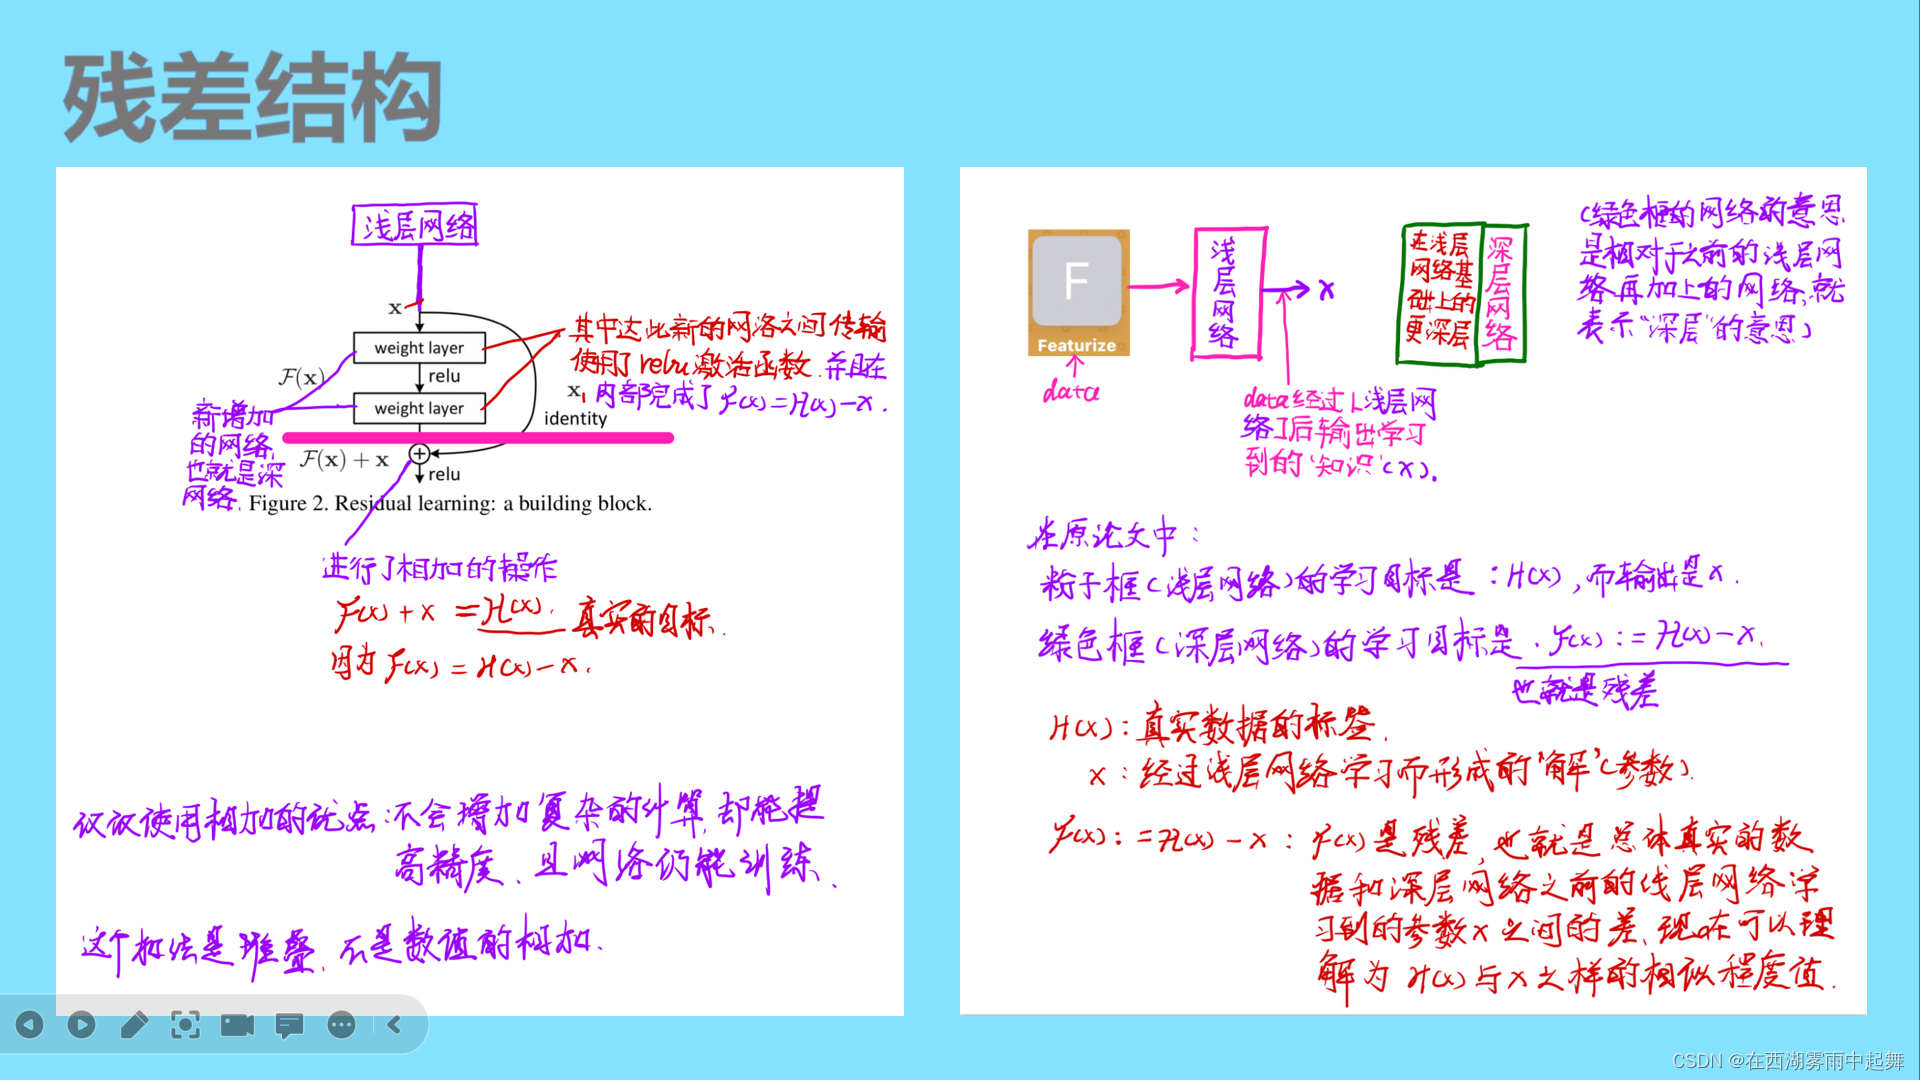 残差结构
浅层网络
x
weight layer
F(x)
relu
weight layer
x
identity
F(x) + x
relu
Figure 2. Residual learning: a building block.
其中这些新的网络之间传输
使用了relu激活函数.并且在
内部完成了F(x)=H(x)-x.
新增加
的网络,
也就是深
网络.
进行了相加的操作
F(x)+x=H(x). 真实的目标.
因为F(x)=H(x)-x.
仅仅使用相加的优点:不会增加复杂的计算,却能提
高精度、且网络仍能训练、
这个加法是堆叠,不是数值的相加.
F
Featurize
data
浅层网络
x
data经过了浅层网
络了后输出学习
到的"知识"(x).
在浅层
网络基
础上的
更深层
深层网络
(绿色框的网络的意思
是相对于之前的浅层网
络再加上的网络,就
表示"深层"的意思)
在原论文中:
粉子框(浅层网络)的学习目标是:H(x),而输出是x.
绿色框(深层网络)的学习目标是.F(x):=H(x)-x.
也就是残差
H(x):真实数据的标签.
x:经过浅层网络学习而形成的'解'(参数).
F(x):=H(x)-x:F(x)是残差,也就是总体真实的数
据和深层网络之前的浅层网络学
习到的参数x之间的差.现在可以理
解为H(x)与x之样的相似程度值.
CSDN @在西湖雾雨中起舞